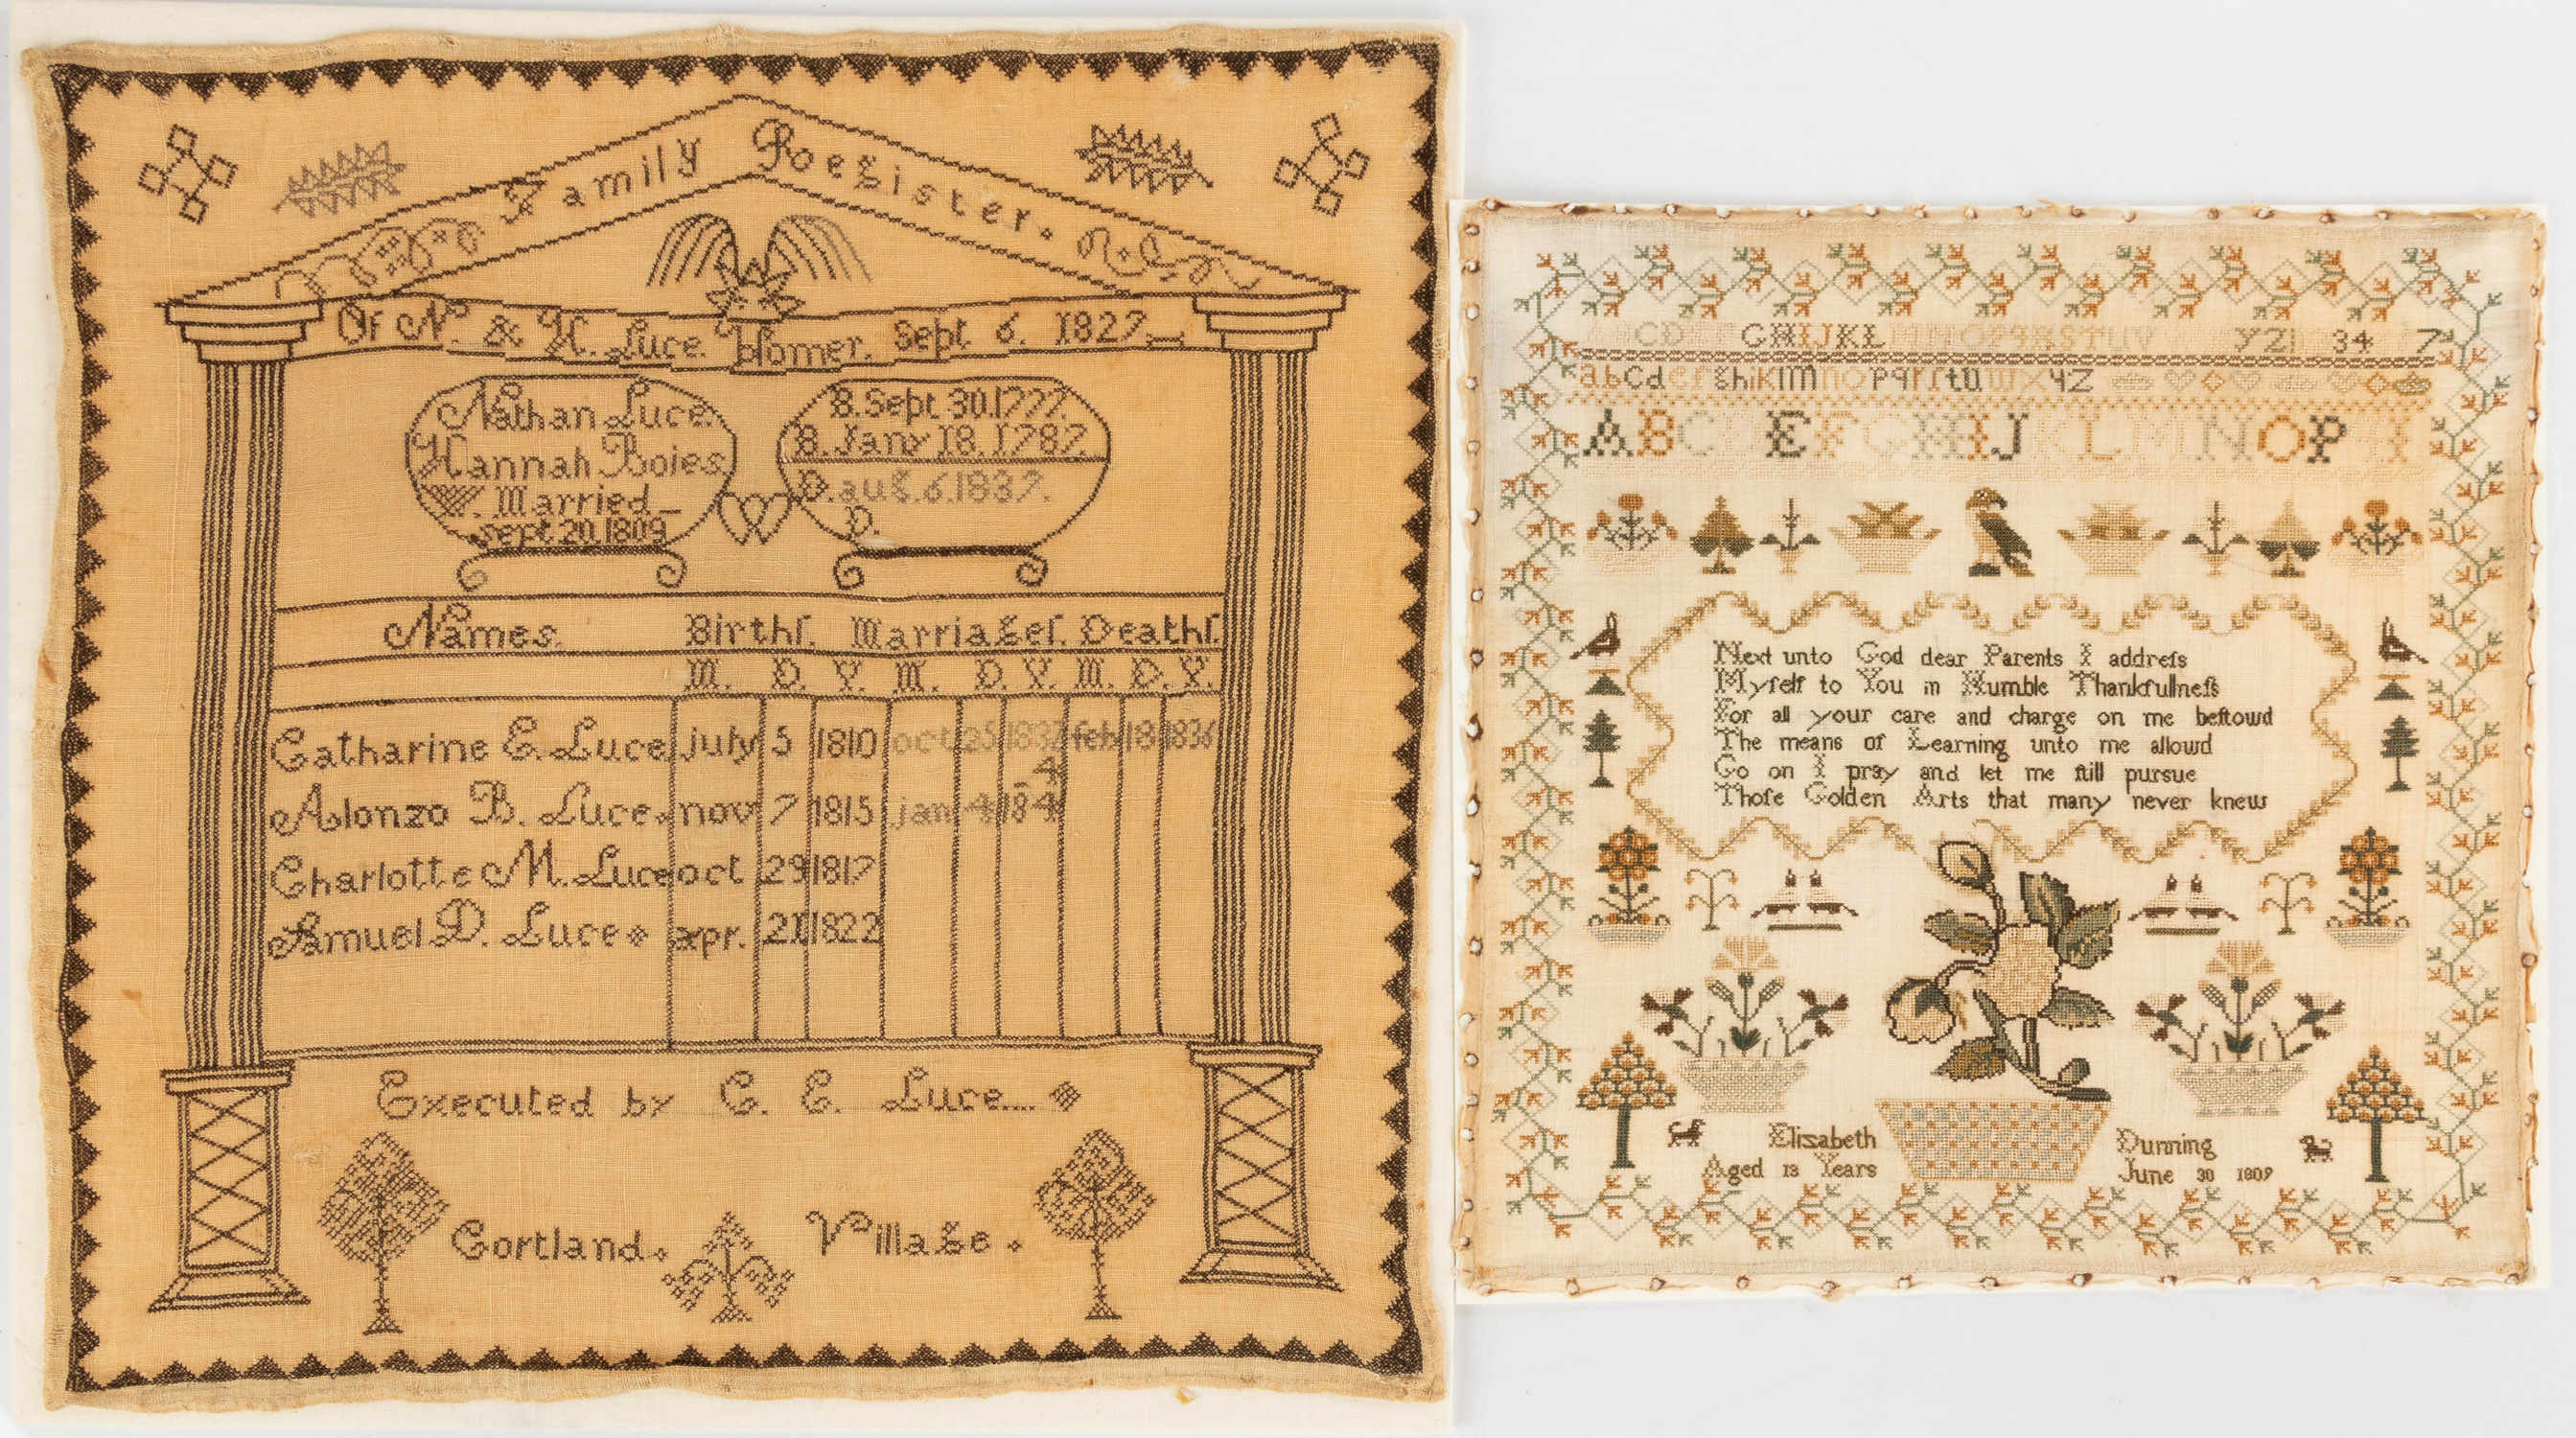 Family Register.
Of N. & H. Luce. Homer. Sept 6. 1827.
Nathan Luce.
Hannah Boies
W. Married
sept 20. 1809
B. Sept 30. 1777.
B. Jany 18. 1787.
D. aug. 6. 1837.
D.
Names. Birthſ. Marriageſ. Deathſ.
M. D. Y. M. D. Y. M. D. Y.
Catharine E. Luce july 5 1810 oct 25 1832 feb 18 1836
4
Alonzo B. Luce nov 7 1815 jan 4 184
Charlotte M. Luce oct 29 1817
Samuel D. Luce apr. 21 1822
Executed by C. E. Luce....
Cortland. Village.
CD GHIJKL MNOPQRSTUV YZ1 34 7
abcdefghiklmnopqrſtuwxyz
ABC EFGHIJ LMNOP
Next unto God dear Parents I addreſs
Myſelf to You in Humble Thankfullneſs
For all your care and charge on me beſtowd
The means of Learning unto me allowd
Go on I pray and let me ſtill pursue
Thoſe Golden Arts that many never knew
Elizabeth Dunning
Aged 13 Years June 30 1809